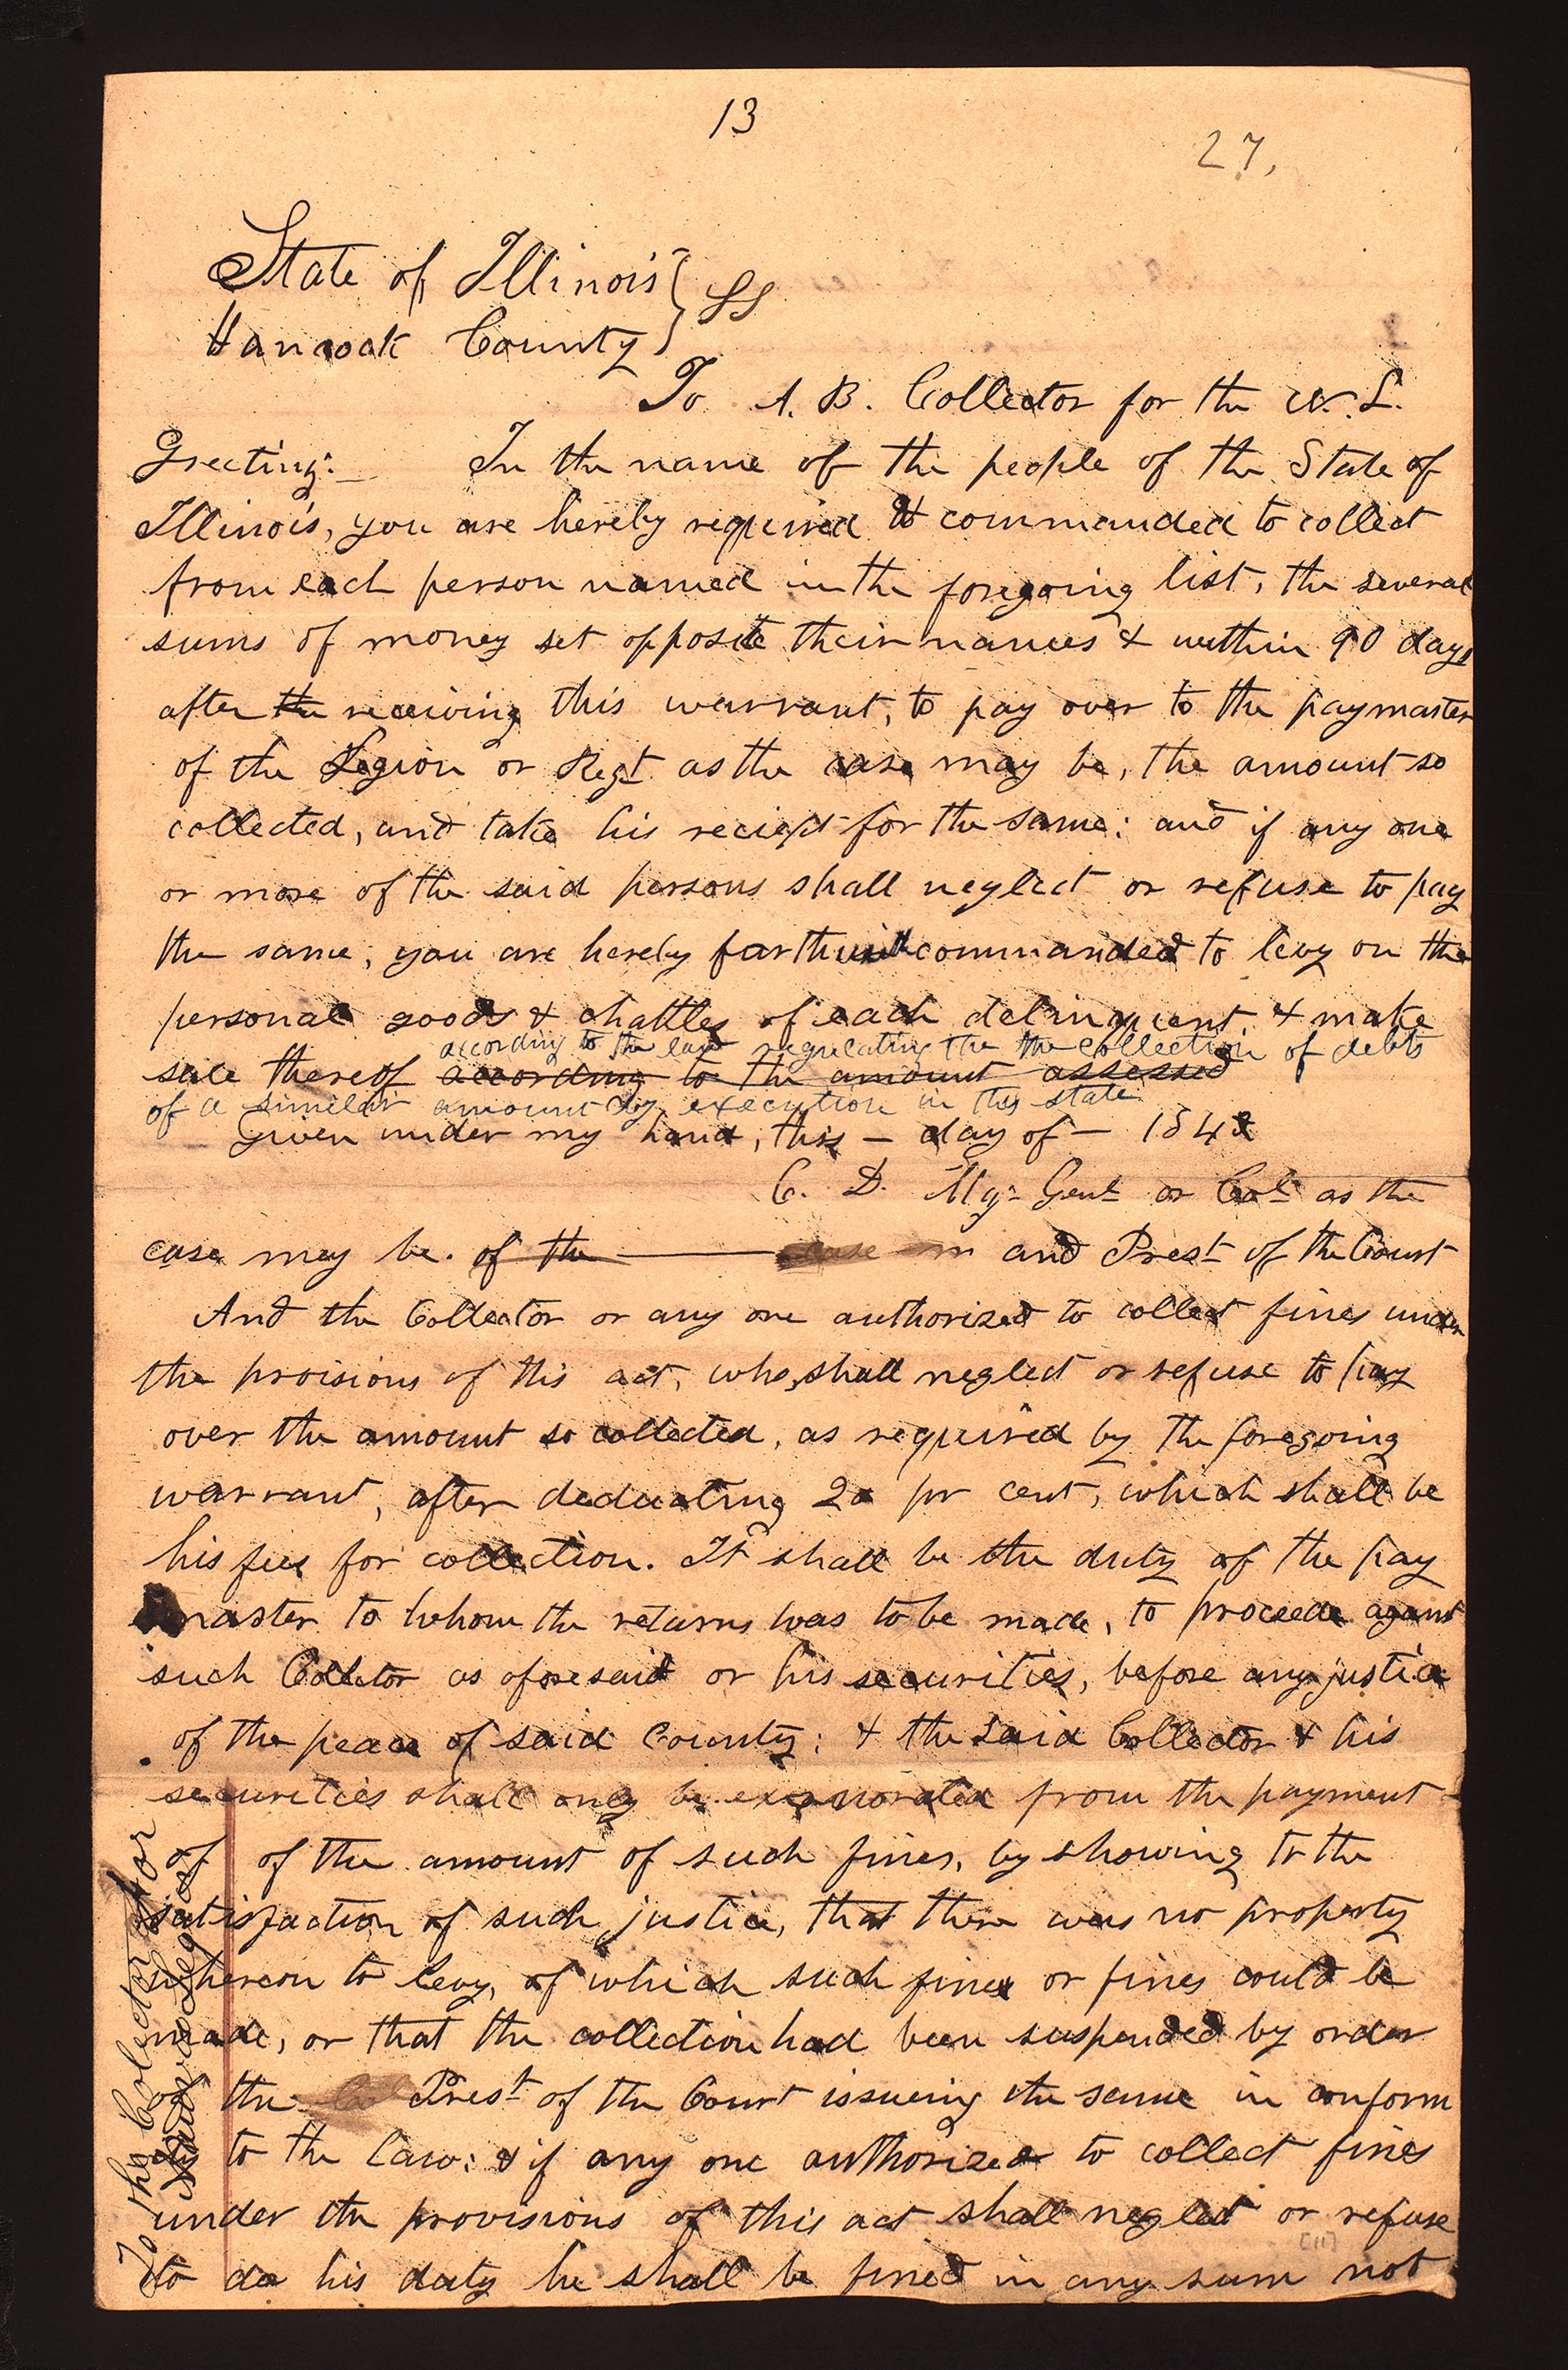 13
27,
State of Illinois } SS
Hancock County
To A. B. Collector for the N. L.
Greeting: In the name of the people of the State of
Illinois, you are hereby required & commanded to collect
from each person named in the foregoing list, the several
sums of money set opposite their names & within 90 days
after the receiving this warrant, to pay over to the paymaster
of the Legion or Regt. as the case may be, the amount so
collected, and take his reciept for the same: and if any one
or more of the said persons shall neglect or refuse to pay
the same, you are hereby forthwith commanded to levy on the
personal goods & chattles of each delinquent, & make
according to the law regulating the the collection of debts
sale thereof according to the amount assessed
of a similar amount by execution in this state
Given under my hand, this — day of — 1842
C. D. Mgr Genl or Col as the
case may be. of the and Prest of the Court
And the Collector or any one authorized to collect fines under
the proisions of this act, who shall neglect or refuse to pay
over the amount so collected, as required by the foregoing
warrant, after deducating 20 pr cent, which shall be
his fees for collection. It shall be the duty of the pay
master to whom the returns was to be made, to proceede against
such Collector as aforesaid or his securities, before any justice
of the peace of said County: & the said Collector & his
securities shall only be exonorated from the payment
of of the amount of such fines, by showing to the
satisfaction of such justice, that there was no property
whereon to levy, of which such fines or fines could be
made, or that the collection had been suspended by order
of the Prest of the Court issueing the same in conform
to the law: & if any one authorized to collect fines
under the provisions of this act shall neglect or refuse
[11]
to do his duty he shall be fined in any sum not
To the Colector for
Legion